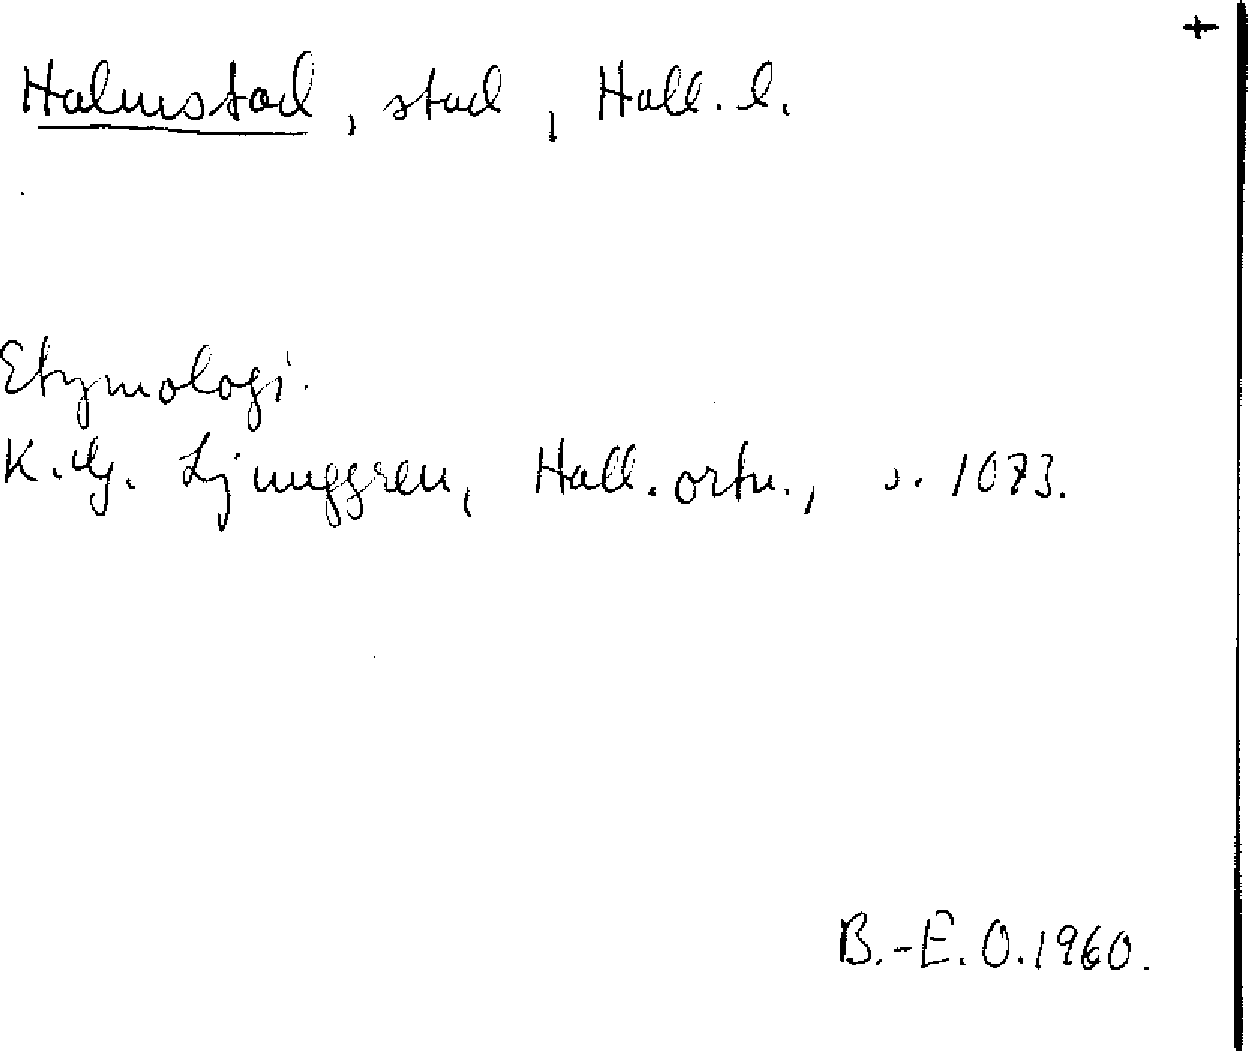 +
Halmstad, stad, Hall. l.
Etymologi.
K. G. Ljunggren, Hall. ortn., s. 1073.
B.-E. O. 1960.